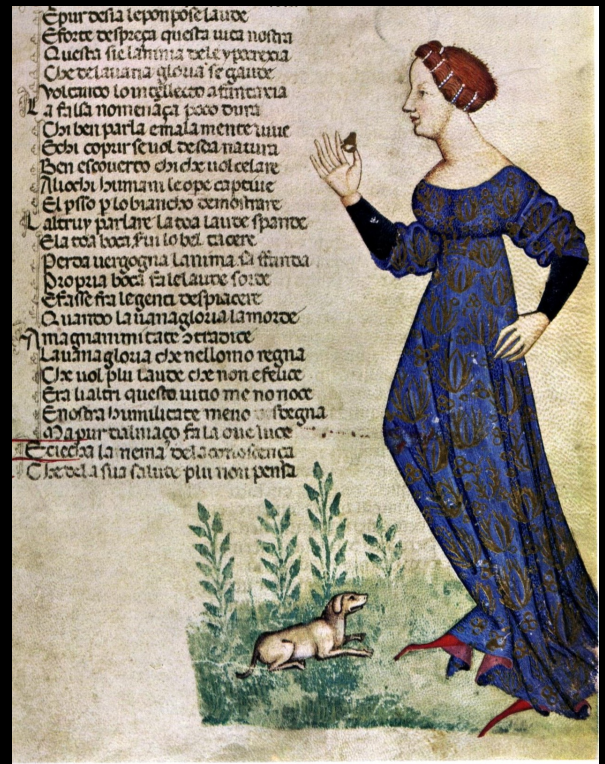 Epur desia le pompose laude
E forte despreça questa uita nostra
Questa sie lanima de le ypocrexia
Che de la uana gloria se gaude
Voltando lo intellecto a fantaxia
La falsa nomenança poco dura
Chi ben parla e mala mente uiue
Echi copur se uol de soa natura
Ben escouerto chi che uol celare
Ali ochi humani le ope captiue
El psso p lo biancho demostrare
Laltruy parlare la toa laude spande
Ela toa boca sun lo bel tacere
Perda uergogna lanima
Propria boca fa le laude sorde
E fasse fra le genti despiacere
Quando la uana gloria la morde
Amagnanimitate contradice
La uana gloria che nellomo regna
Che uol plu laude che non e felice
Fra li altri questo uitio me no noce
E nostra humilitate meno sdegna
Ma pur dal maço fa la oue luce
E ciecha la nema de la conoscença
Che de la sua salute plu non pensa